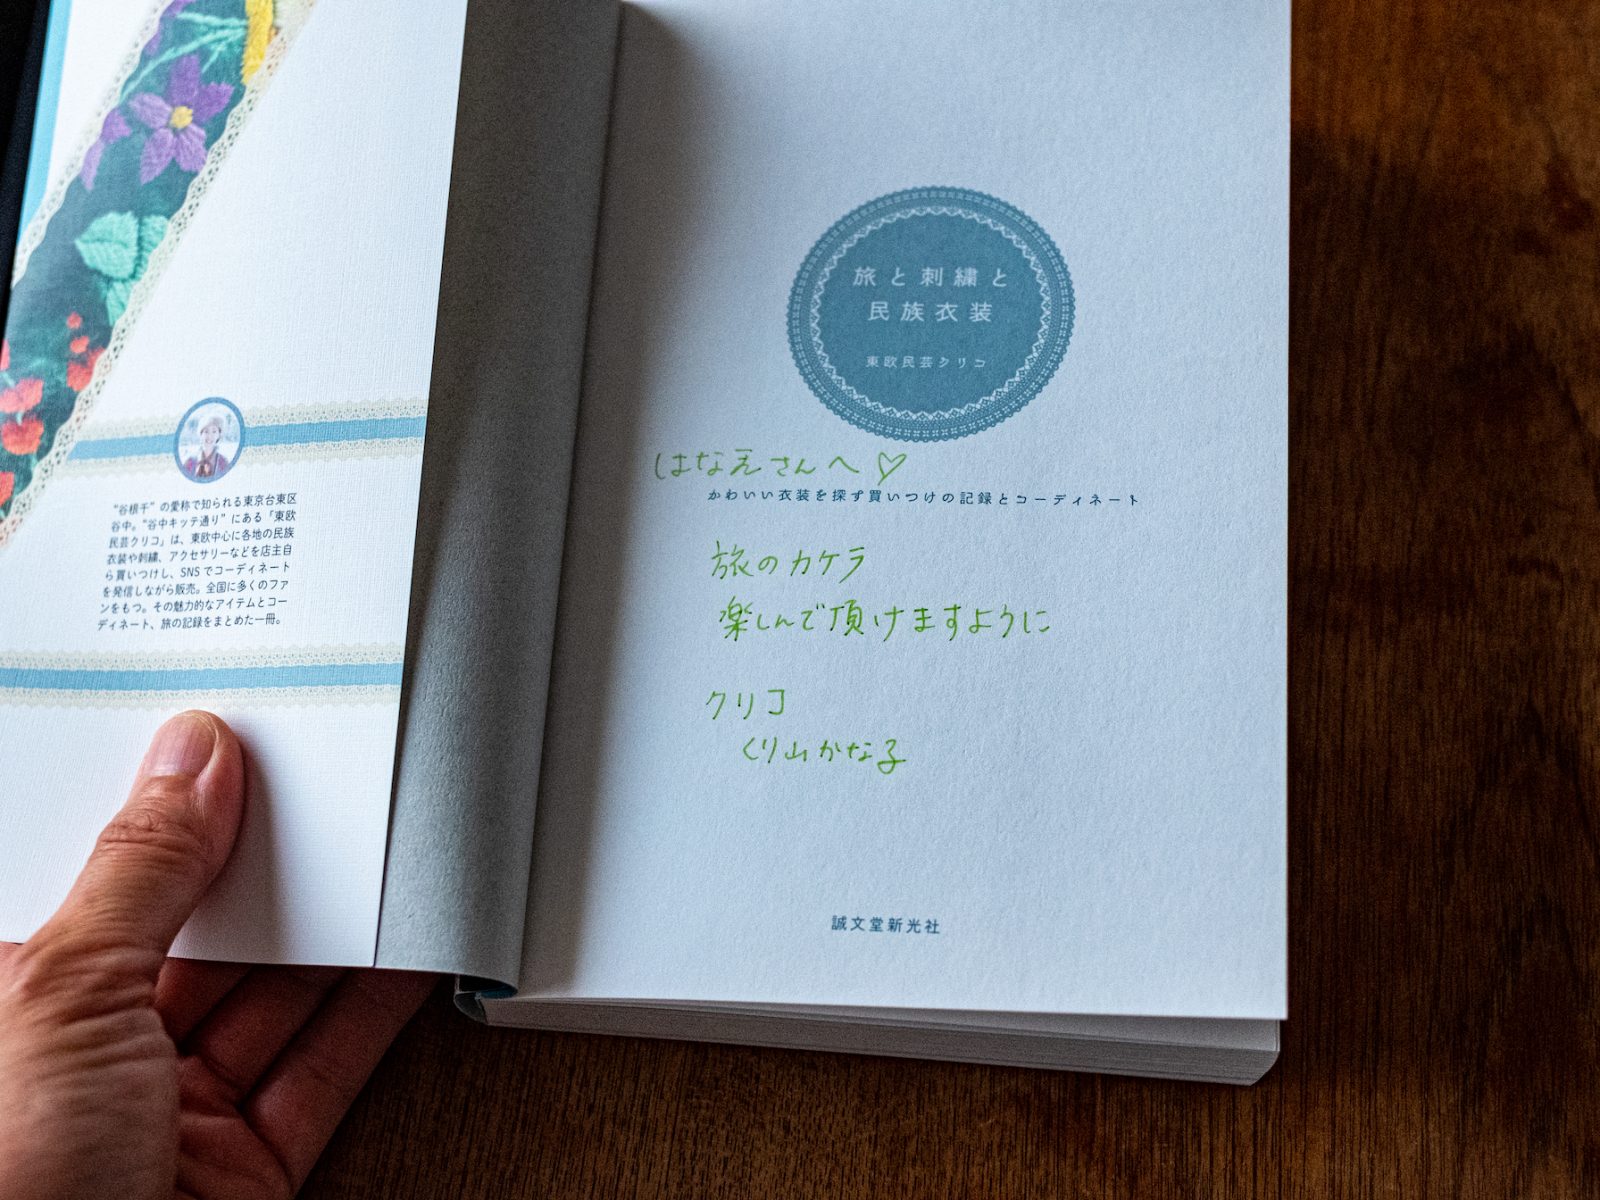 “谷根千”の愛称で知られる東京台東区
谷中。“谷中キッテ通り”にある「東欧
民芸クリコ」は、東欧中心に各地の民族
衣装や刺繍、アクセサリーなどを店主自
ら買いつけし、SNSでコーディネート
を発信しながら販売。全国に多くのファ
ンをもつ。その魅力的なアイテムとコー
ディネート、旅の記録をまとめた一冊。
旅と刺繍と
民族衣装
東欧民芸クリコ
はなえさんへ♡
かわいい衣装を探す買いつけの記録とコーディネート
旅のカケラ
楽しんで頂けますように
クリコ
くり山かな子
誠文堂新光社